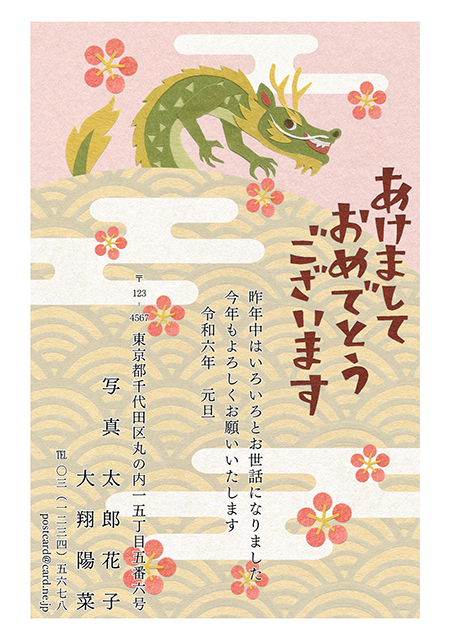 あけまして
おめでとう
ございます
昨年中はいろいろとお世話になりました
今年もよろしくお願いいたします
令和六年 元旦
〒123-4567
東京都千代田区丸の内一五丁目五番六号
写真 太郎 花子
大翔 陽菜
℡ 〇三（一二三四）五六七八
postcard@card.ne.jp